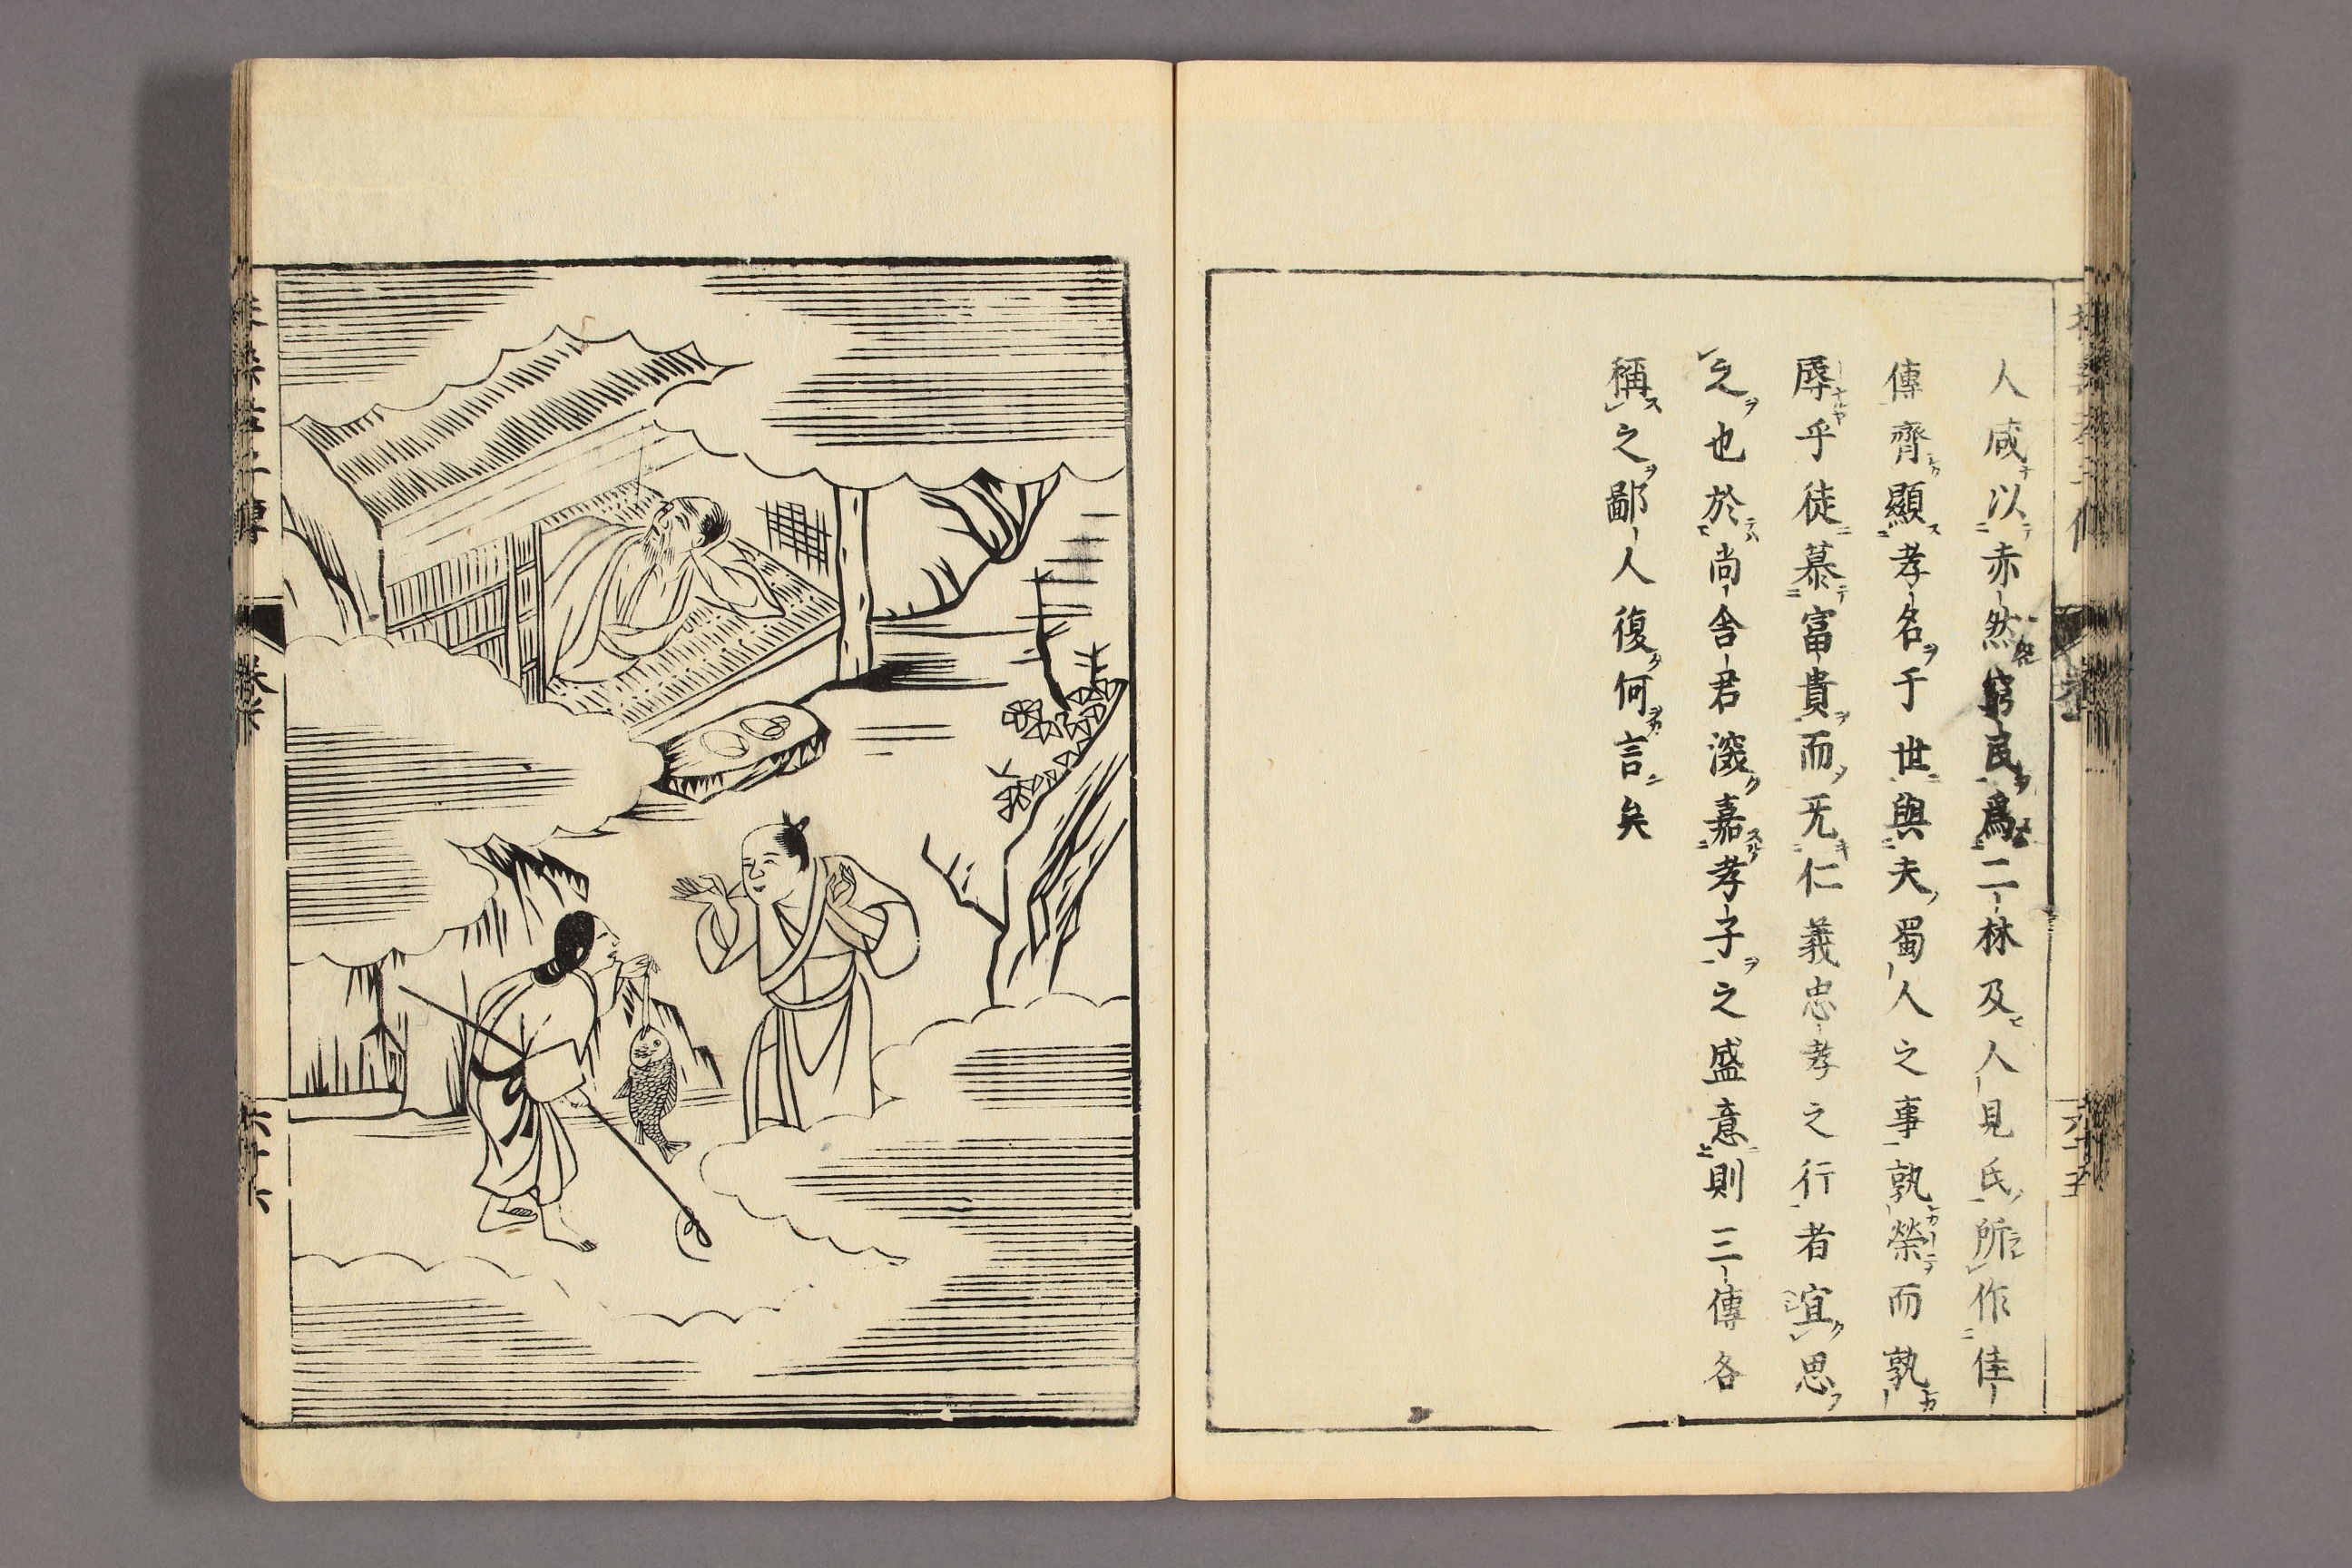 人咸以赤然窮民爲二林及人見氏所作佳
傳齊顯孝名于世與夫蜀人之事孰榮而孰
辱乎徒慕富貴而无仁義忠孝之行者宜思
之也於尚舎君深嘉孝子之盛意則三傳各
稱之鄙人復何言矣
六十五
六十六